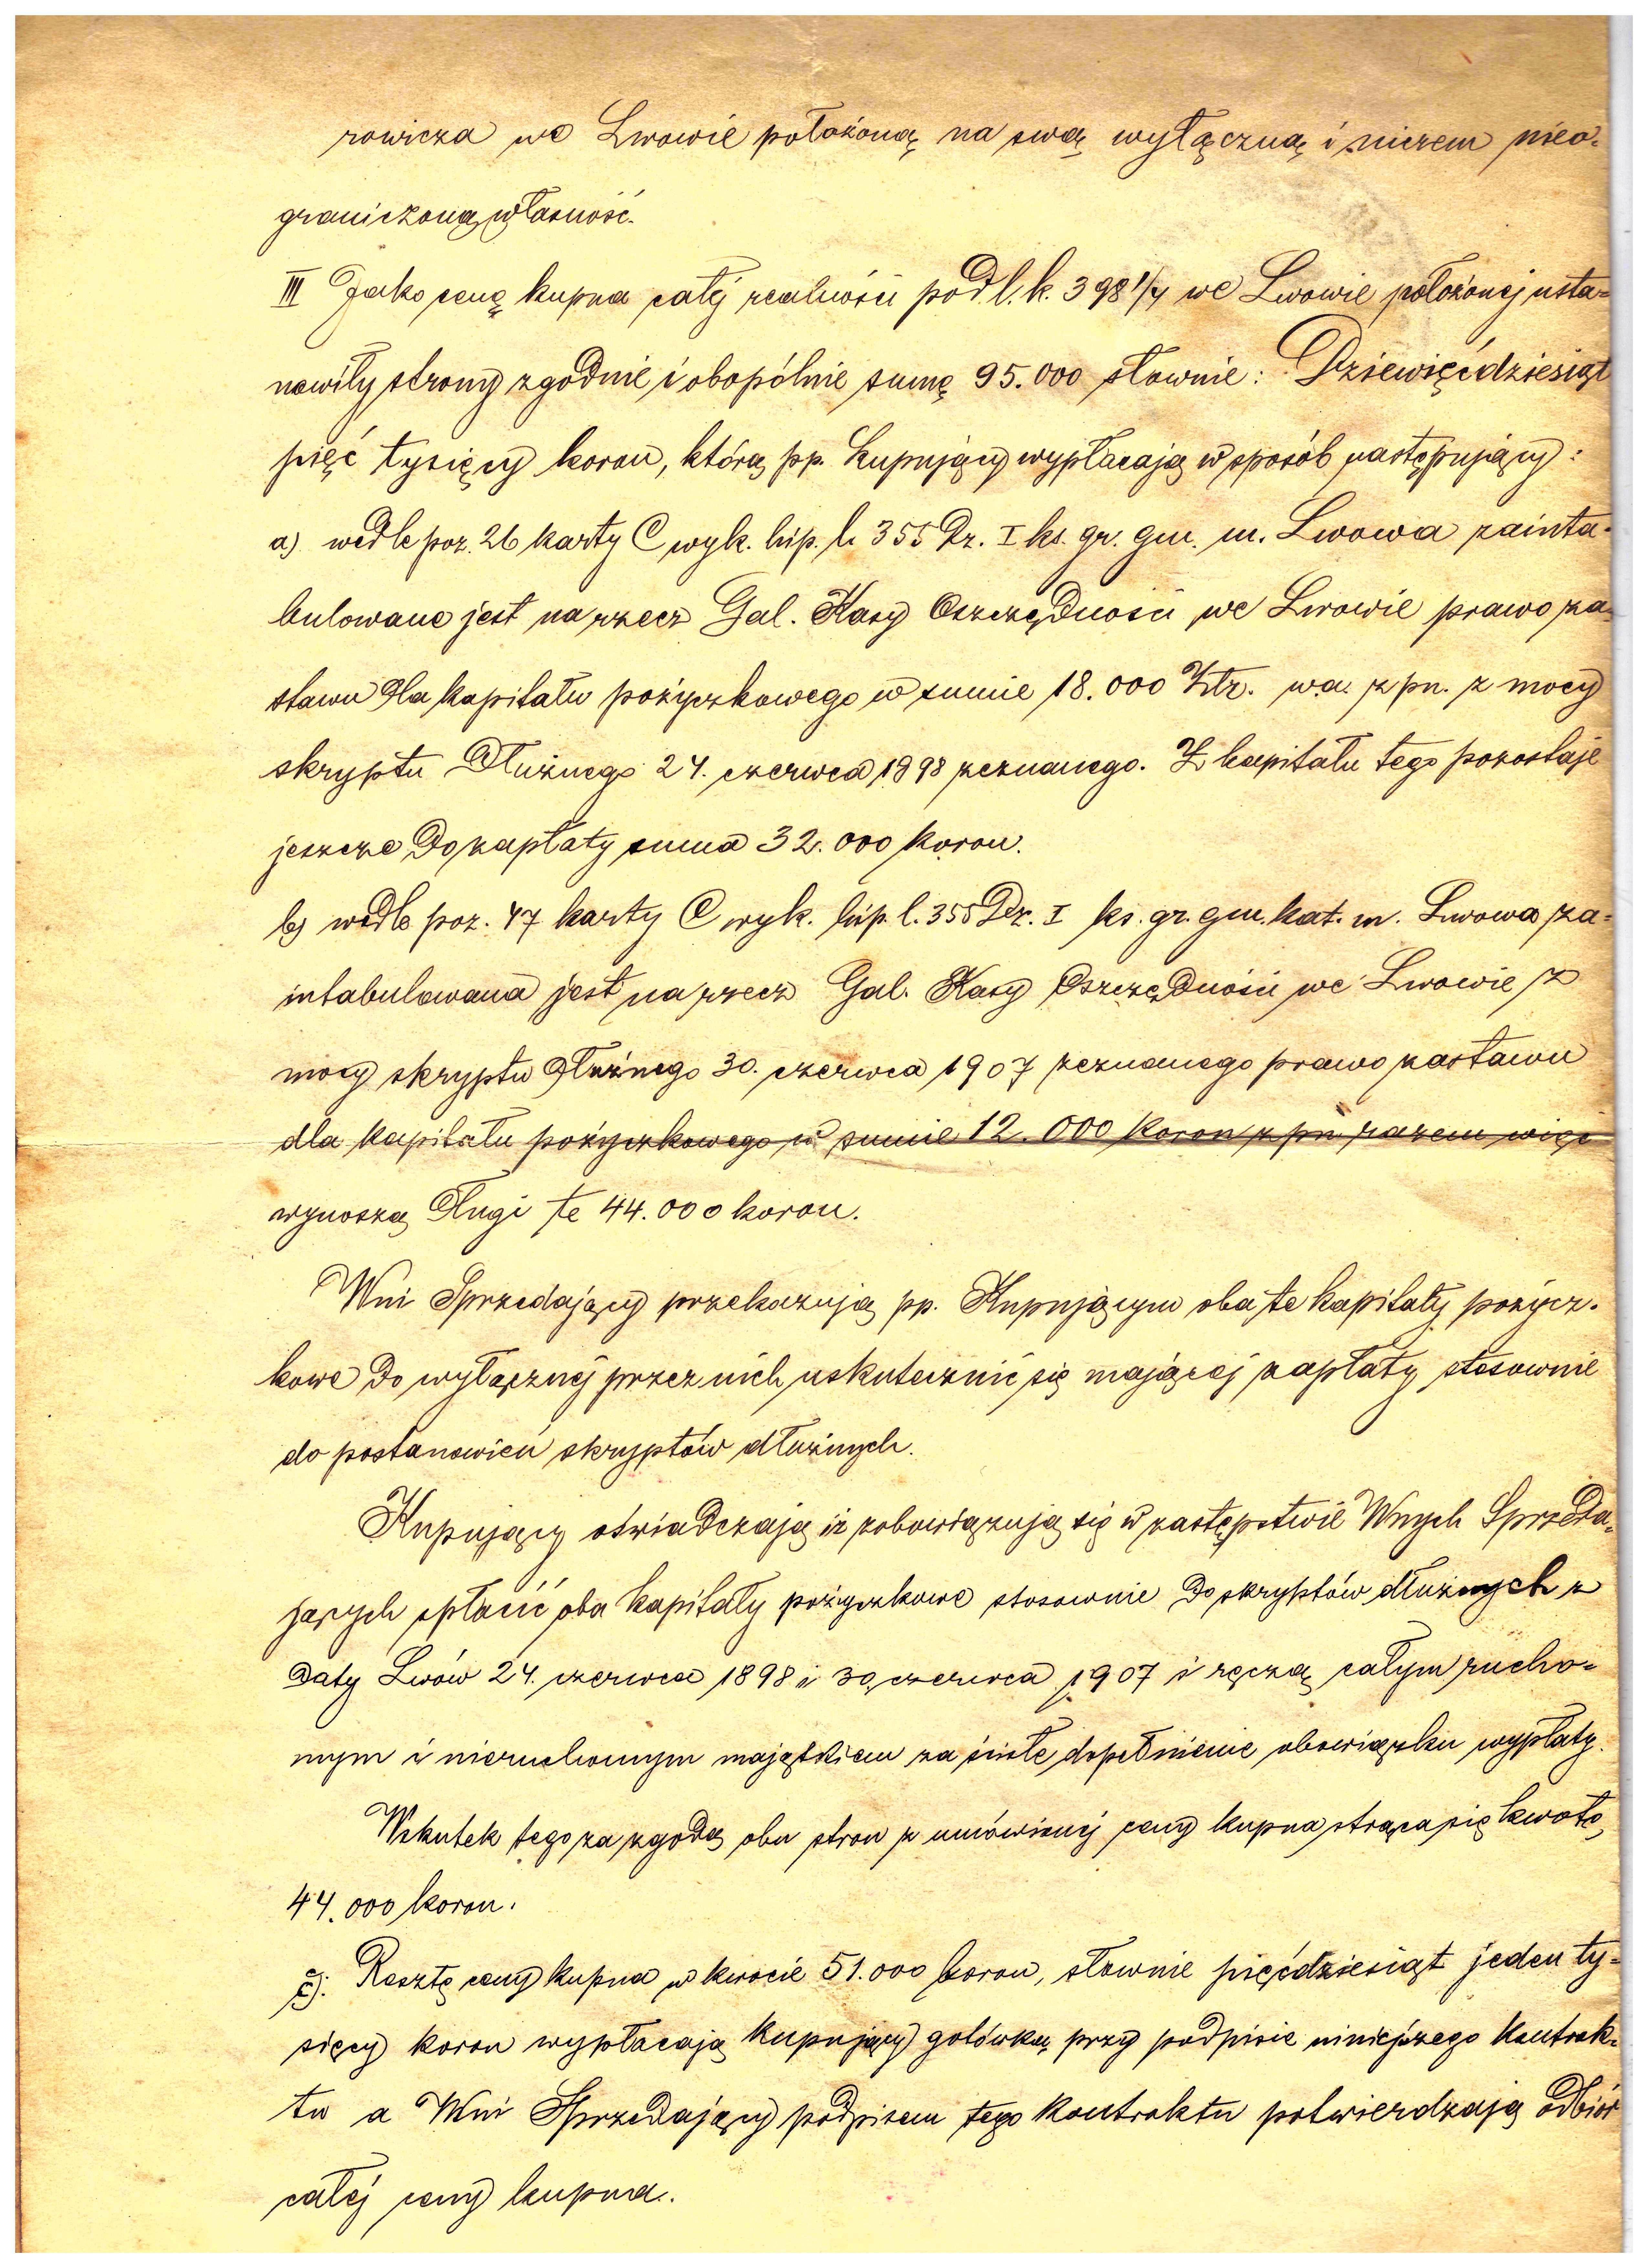 rowicza we Lwowie położoną na swą wyłączną i niczem nieo-
graniczoną własność.
III Jako cenę kupna całej realności pod l. k. 398 1/4 we Lwowie położonej usta-
nowiły strony zgodnie i obopólnie sumę 95.000 słownie: Dziewięćdziesiąt
pięć tysięcy koron, którą pp. Kupujący wypłacają w sposób następujący:
a) wedle poz. 26 karty C wyk. hip. l. 355 Dz. I ks. gr. gm. m. Lwowa zainta-
bulowane jest na rzecz Gal. Kasy Oszczędności we Lwowie prawo za-
stawu dla kapitału pożyczkowego w sumie 18.000 Złr. wa. z pn. z mocy
skryptu dłużnego 24. czerwca 1898 zeznanego. Z kapitału tego pozostaje
jeszcze do zapłaty suma 32.000 koron.
b) wedle poz. 47 karty C wyk. hip. l. 355 Dz. I ks. gr. gm. kat. m. Lwowa za-
intabulowana jest na rzecz Gal. Kasy Oszczędności we Lwowie z
mocy skryptu dłużnego 30. czerwca 1907 zeznanego prawo zastawu
dla kapitału pożyczkowego w sumie 12.000 koron z pn razem więc
wynoszą długi te 44.000 koron.
Wni Sprzedający przekazują pp. Kupującym oba te kapitały pożycz-
kowe do wyłącznej przez nich uskutecznić się mającej zapłaty stosownie
do postanowień skryptów dłużnych.
Kupujący oświadczają iż zobowiązują się w zastępstwie Wnych Sprzeda-
jących spłacić oba kapitały pożyczkowe stosownie do skryptów dłużnych z
daty Lwów 24. czerwca 1898 i 30. czerwca 1907 i ręczą całym rucho-
mym i nieruchomym majątkiem za ścisłe dopełnienie obowiązku wypłaty.
Wskutek tego za zgodą obu stron z umówionej ceny kupna strąca się kwotę
44.000 koron.
c): Resztę ceny kupna w kwocie 51.000 koron, słownie pięćdziesiąt jeden ty-
sięcy koron wypłacają Kupujący gotówką przy podpisie niniejszego Kontrak-
tu a Wni Sprzedający podpisem tego Kontraktu potwierdzają odbiór
całej ceny kupna.